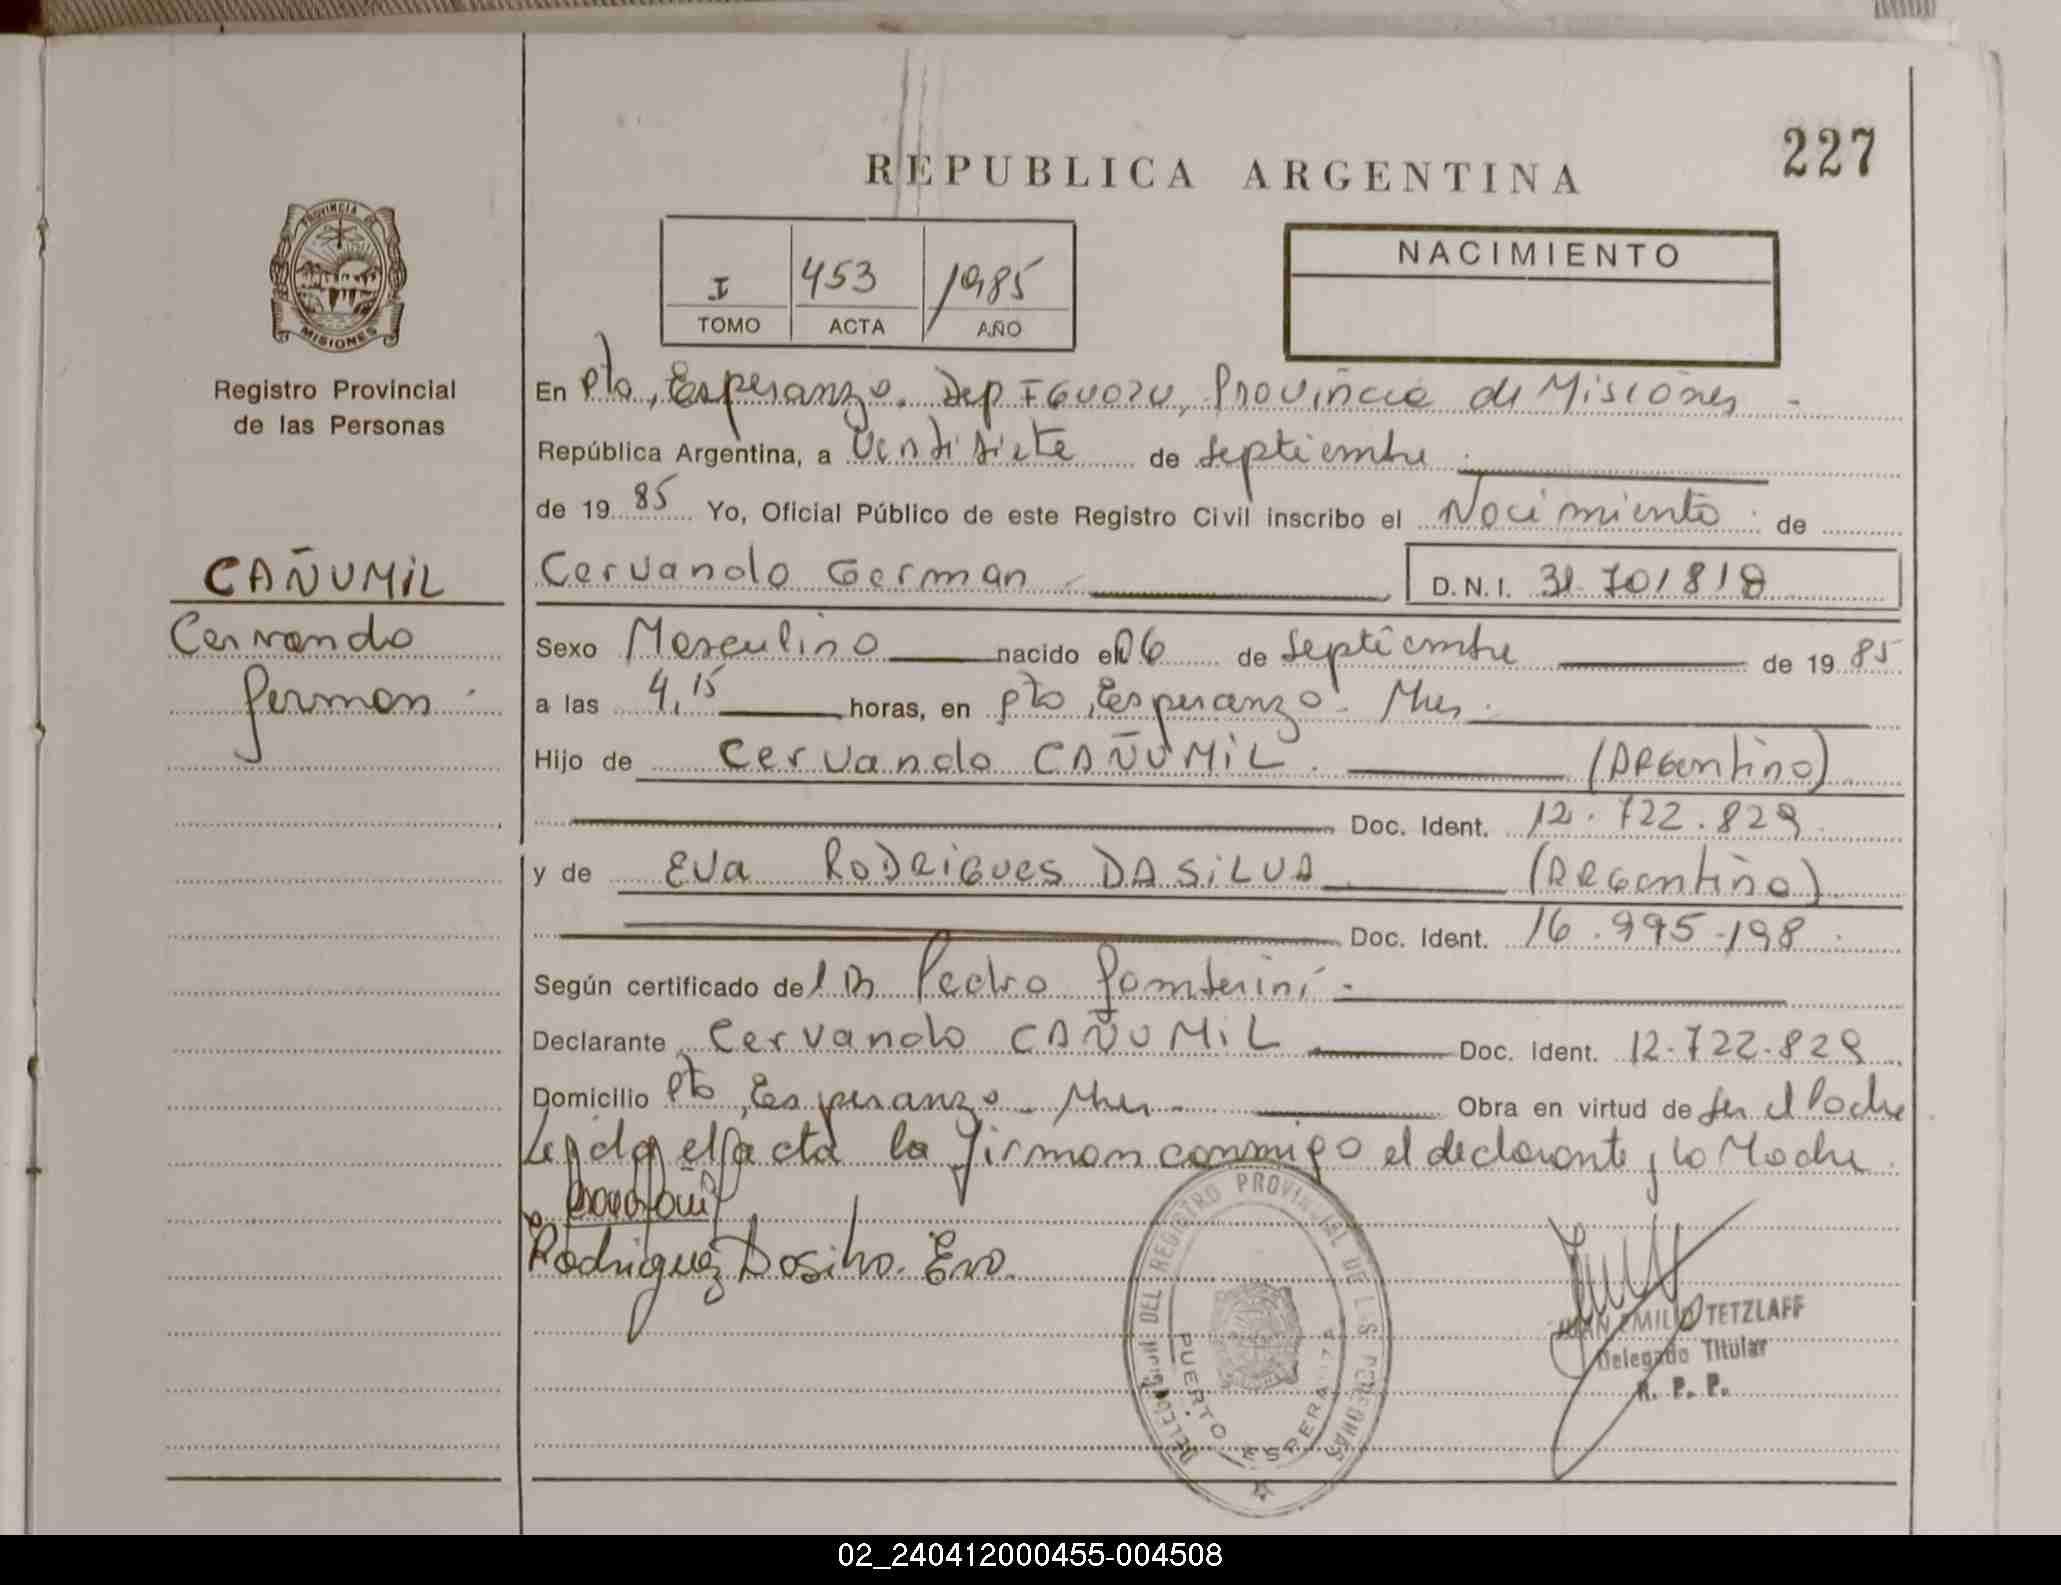 227
REPUBLICA ARGENTINA
PROVINCIA DE
MISIONES
Registro Provincial
de las Personas
I 453 1985
TOMO ACTA AÑO
NACIMIENTO
En Pto, Esperanza. Dep IGUAZU, Provincia de Misiones -
República Argentina, a Ventisiete de Septiembre
de 19 85 Yo, Oficial Público de este Registro Civil inscribo el Nacimiento de
CAÑUMIL
Cervando German
Cervando German D.N.I. 31.701818
Sexo Masculino nacido el 06 de Septiembre de 19 85
a las 4,15 horas, en Pto, Esperanza. Mnes.
Hijo de Cervando CAÑUMIL. (Argentino)
Doc. Ident. 12.722.829
y de Eva RODRIGUES DASILVA (Argentina)
Doc. Ident. 16.995.198.
Según certificado del Dr Pedro -
Declarante Cervando CAÑUMIL Doc. Ident. 12.722.829
Domicilio Pto, Esperanza - Mnes - Obra en virtud de Ser el Padre
Leida el acta la firman conmigo el declarante y la Madre.
Rodriguez Dasilva. Eva.
DELEGACION DEL REGISTRO PROVINCIAL DE LAS PERSONAS
PUERTO ESPERANZA
JUAN EMILIO TETZLAFF
Delegado Titular
R. P. P.
02_240412000455-004508